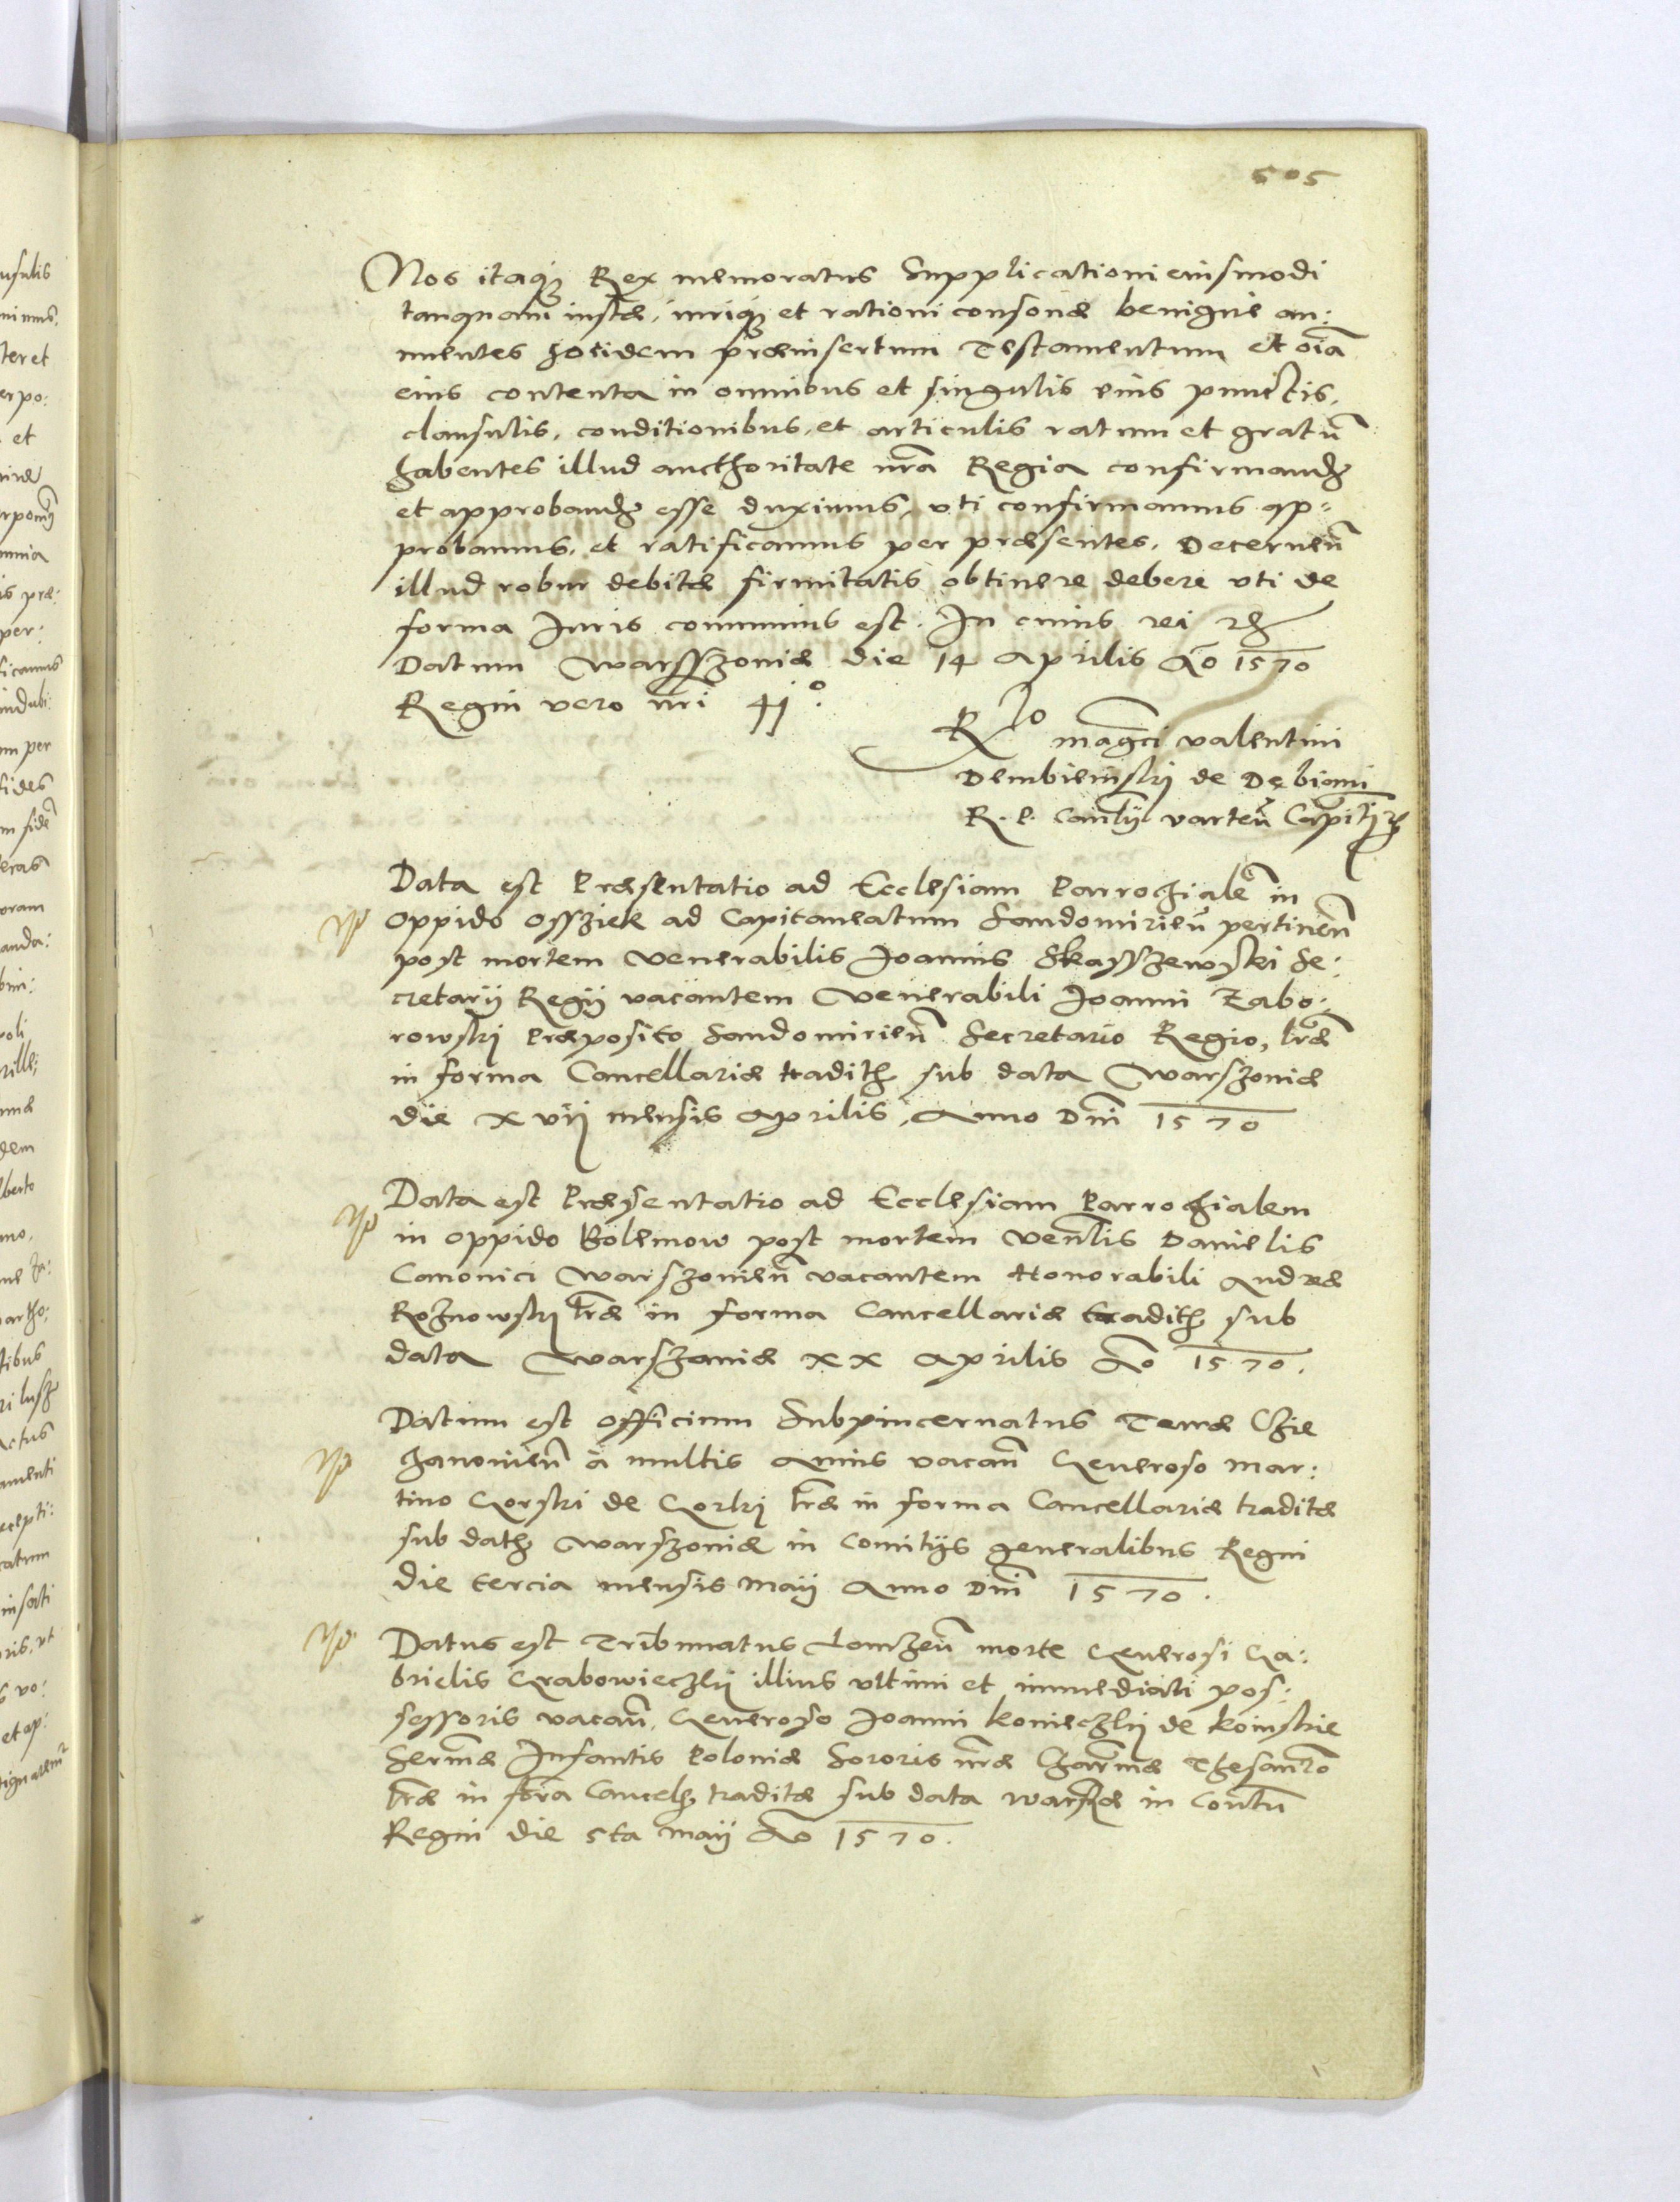 505
Nos itaq₃ Rex memoratus Supplicationi eiusmodi
tanquam iustæ, iuriq₃ et rationi consonæ benigne an:
nuentes hocidem præinsertum Testamentum et oīa
eius contenta in omnibus et singulis eius punctis,
clausulis, conditionibus, et articulis ratum et gratū
habentes illud aucthoritate nrā Regia confirmand₃
et approband₃ esse duximus, vti confirmamus ap=
probamus, et ratificamus per præsentes. Decernen̄
illud robur debitæ firmitatis obtinere debere vti de
forma Iuris communis est. In cuius rei
Datum Warsszoniæ die 14 Aprilis Aō 1570
Regni vero nri 41°.
Rlō magci valentini
Dembieinskj de Dębiani
R. P. Canlÿ varten̄ Capitj
Data est Præsentatio ad Ecclesiam Parrochialē in
oppido Ossziek ad Capitaneatum Sandomirien̄ pertinen̄
post mortem Venerabilis Joannis Skarszewski Se:
cretarÿ Regÿ vacantem Venerabili Joanni Zabo:
rowskj Præposito Sandomirien̄ Secretario Regio, lræ
in forma Cancellariæ tradit₃ sub data Warszoniæ
die xvij mensis Aprilis, Anno Dnī 1570
Data est Præsentatio ad Ecclesiam Parrochialem
in oppido Bolemow post mortem Venlis Danielis
Canonici Warszonien̄ vacantem Honorabili Andreæ
Roznowskj lræ in forma Cancellariæ tradit₃ sub
data Warszoniæ xx Aprilis Aō 1570.
Datum est officium Subpincernatus Terræ Czie
chanouien̄ à multis Annis vacan̄ Generoso Mar:
tino Gorski de Gorkj lræ in forma Cancellariæ traditæ
sub dat₃ Warszoniæ in Comitÿs generalibus Regni
die tercia mensis Maÿ Anno Dnī 1570.
Datus est Tribunatus Lomzen̄ morte Generosi Ga:
brielis Grabowieczkj illius vltimi et immediati pos:
sessoris vacan̄, Generoso Joanni Konieczkj de Koinskie
Sermæ Infantis Poloniæ Sororis nræ Charmæ Thesaur̄o
lræ in forā Cancel₃ traditæ sub data Warsæ in Conūtu
Regni die 5ta Maÿ Aō 1570.